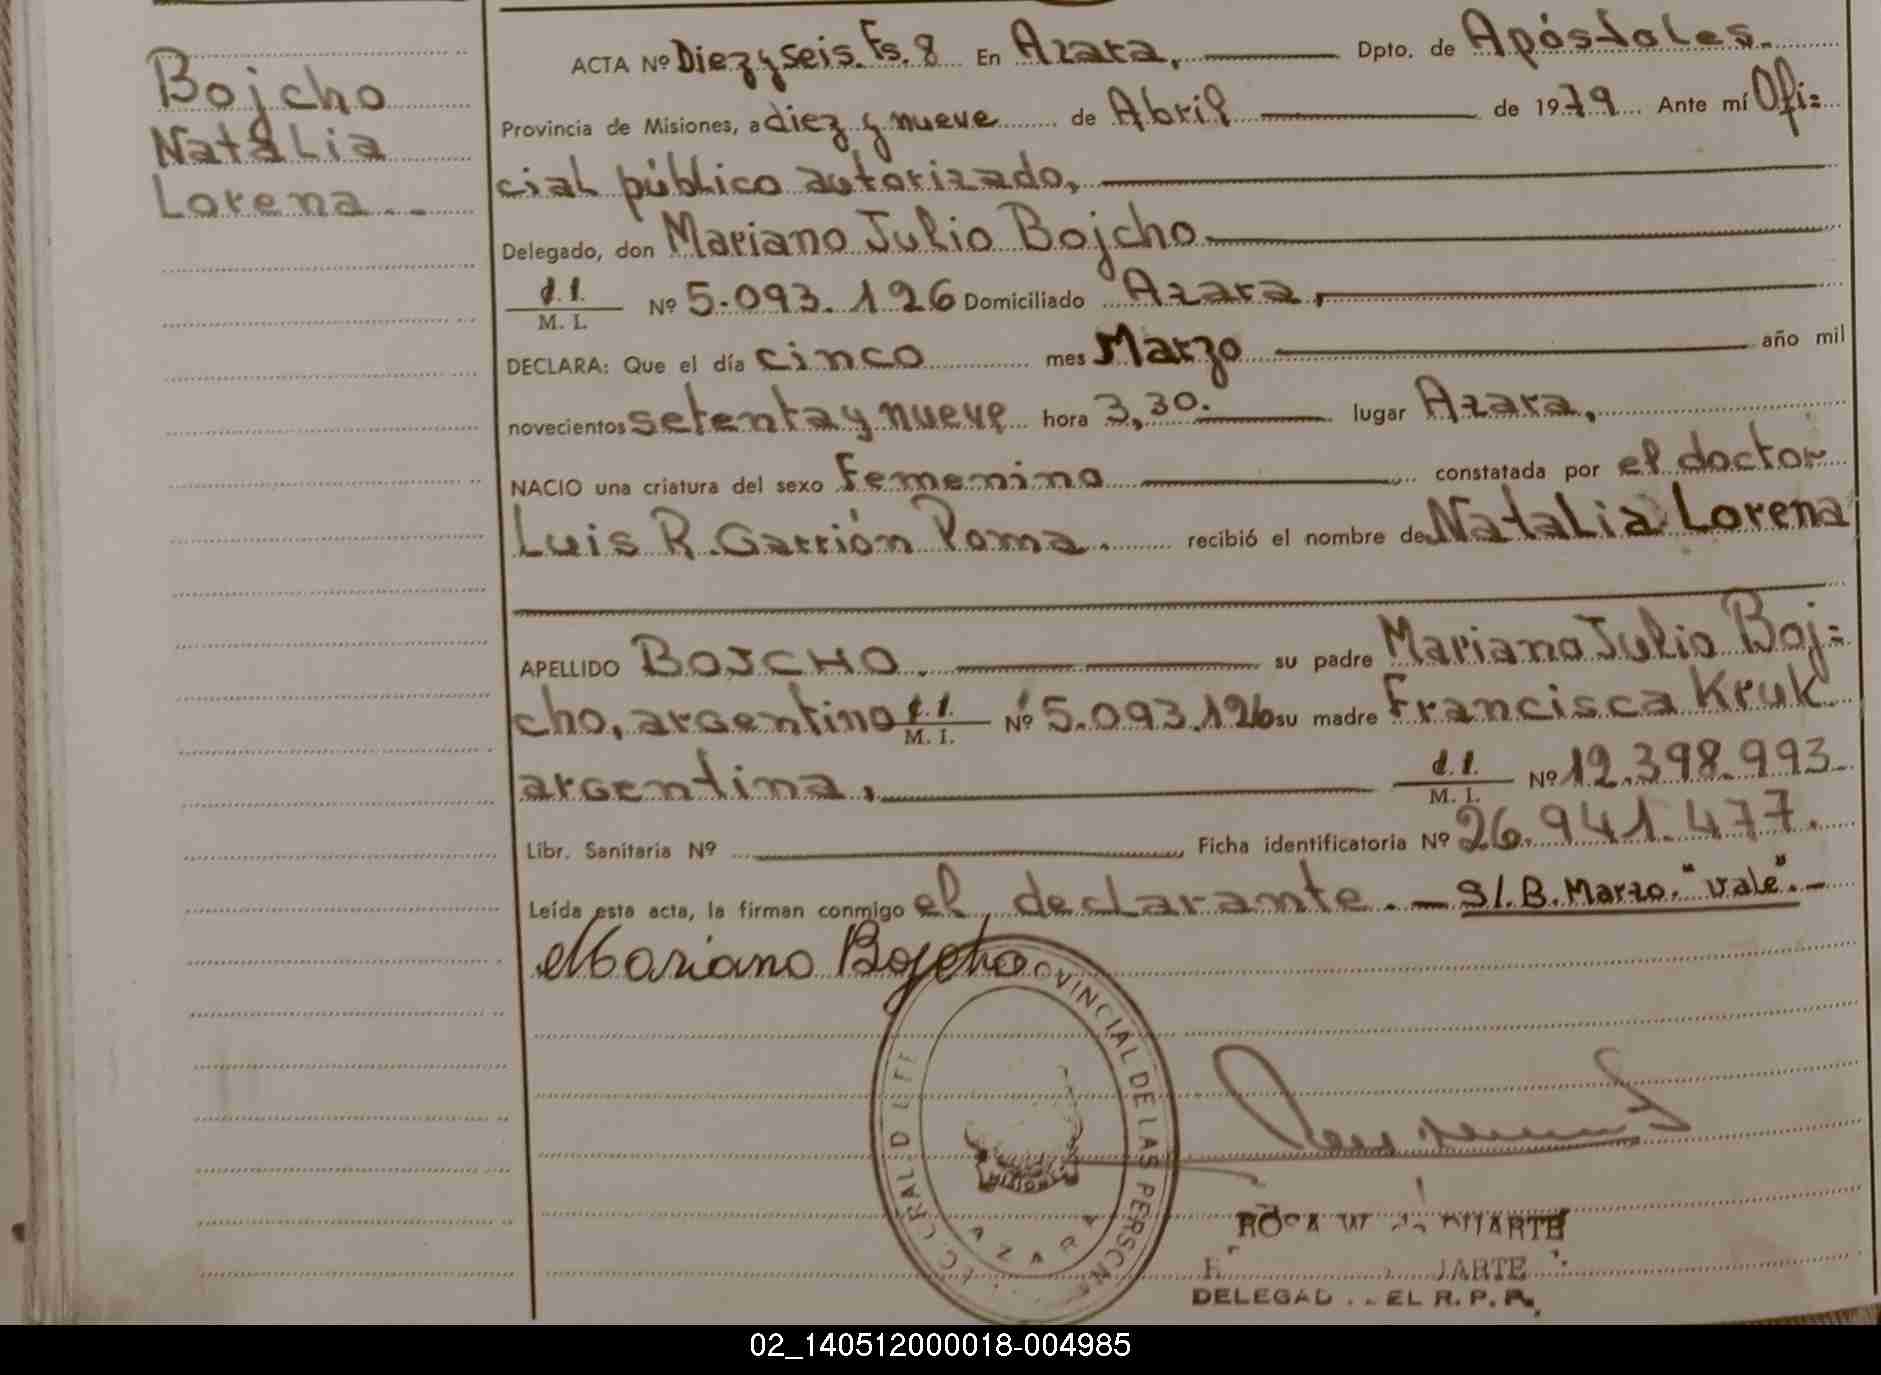 Bojcho
Natalia
Lorena.-
ACTA Nº Diez y seis. Fs. 8 En Azara, Dpto. de Apóstoles.
Provincia de Misiones, a diez y nueve de Abril de 1979 Ante mí Ofi=
cial público autorizado,
Delegado, don Mariano Julio Bojcho
d.I. M. I. Nº 5.093.126 Domiciliado Azara,
DECLARA: Que el día cinco mes Marzo año mil
novecientos setenta y nueve hora 3,30. lugar Azara,
NACIO una criatura del sexo Femenino constatada por el doctor
Luis R. Garrión Poma. recibió el nombre de Natalia Lorena
APELLIDO BOJCHO. su padre Mariano Julio Boj=
cho, argentino M. I. Nº 5.093.126 su madre Francisca Kruk
argentina, d.I. M. I. Nº 12.398.993
Libr. Sanitaria Nº Ficha identificatoria Nº 26.941.477.
Leída esta acta, la firman conmigo el declarante.- S/.B. Marzo. "vale".-
Mariano Bojcho
PROVINCIAL DE LAS PERSONAS
MISIONES
AZARA
DUARTE
DELEGAD EL R. P. P.
02_140512000018-004985